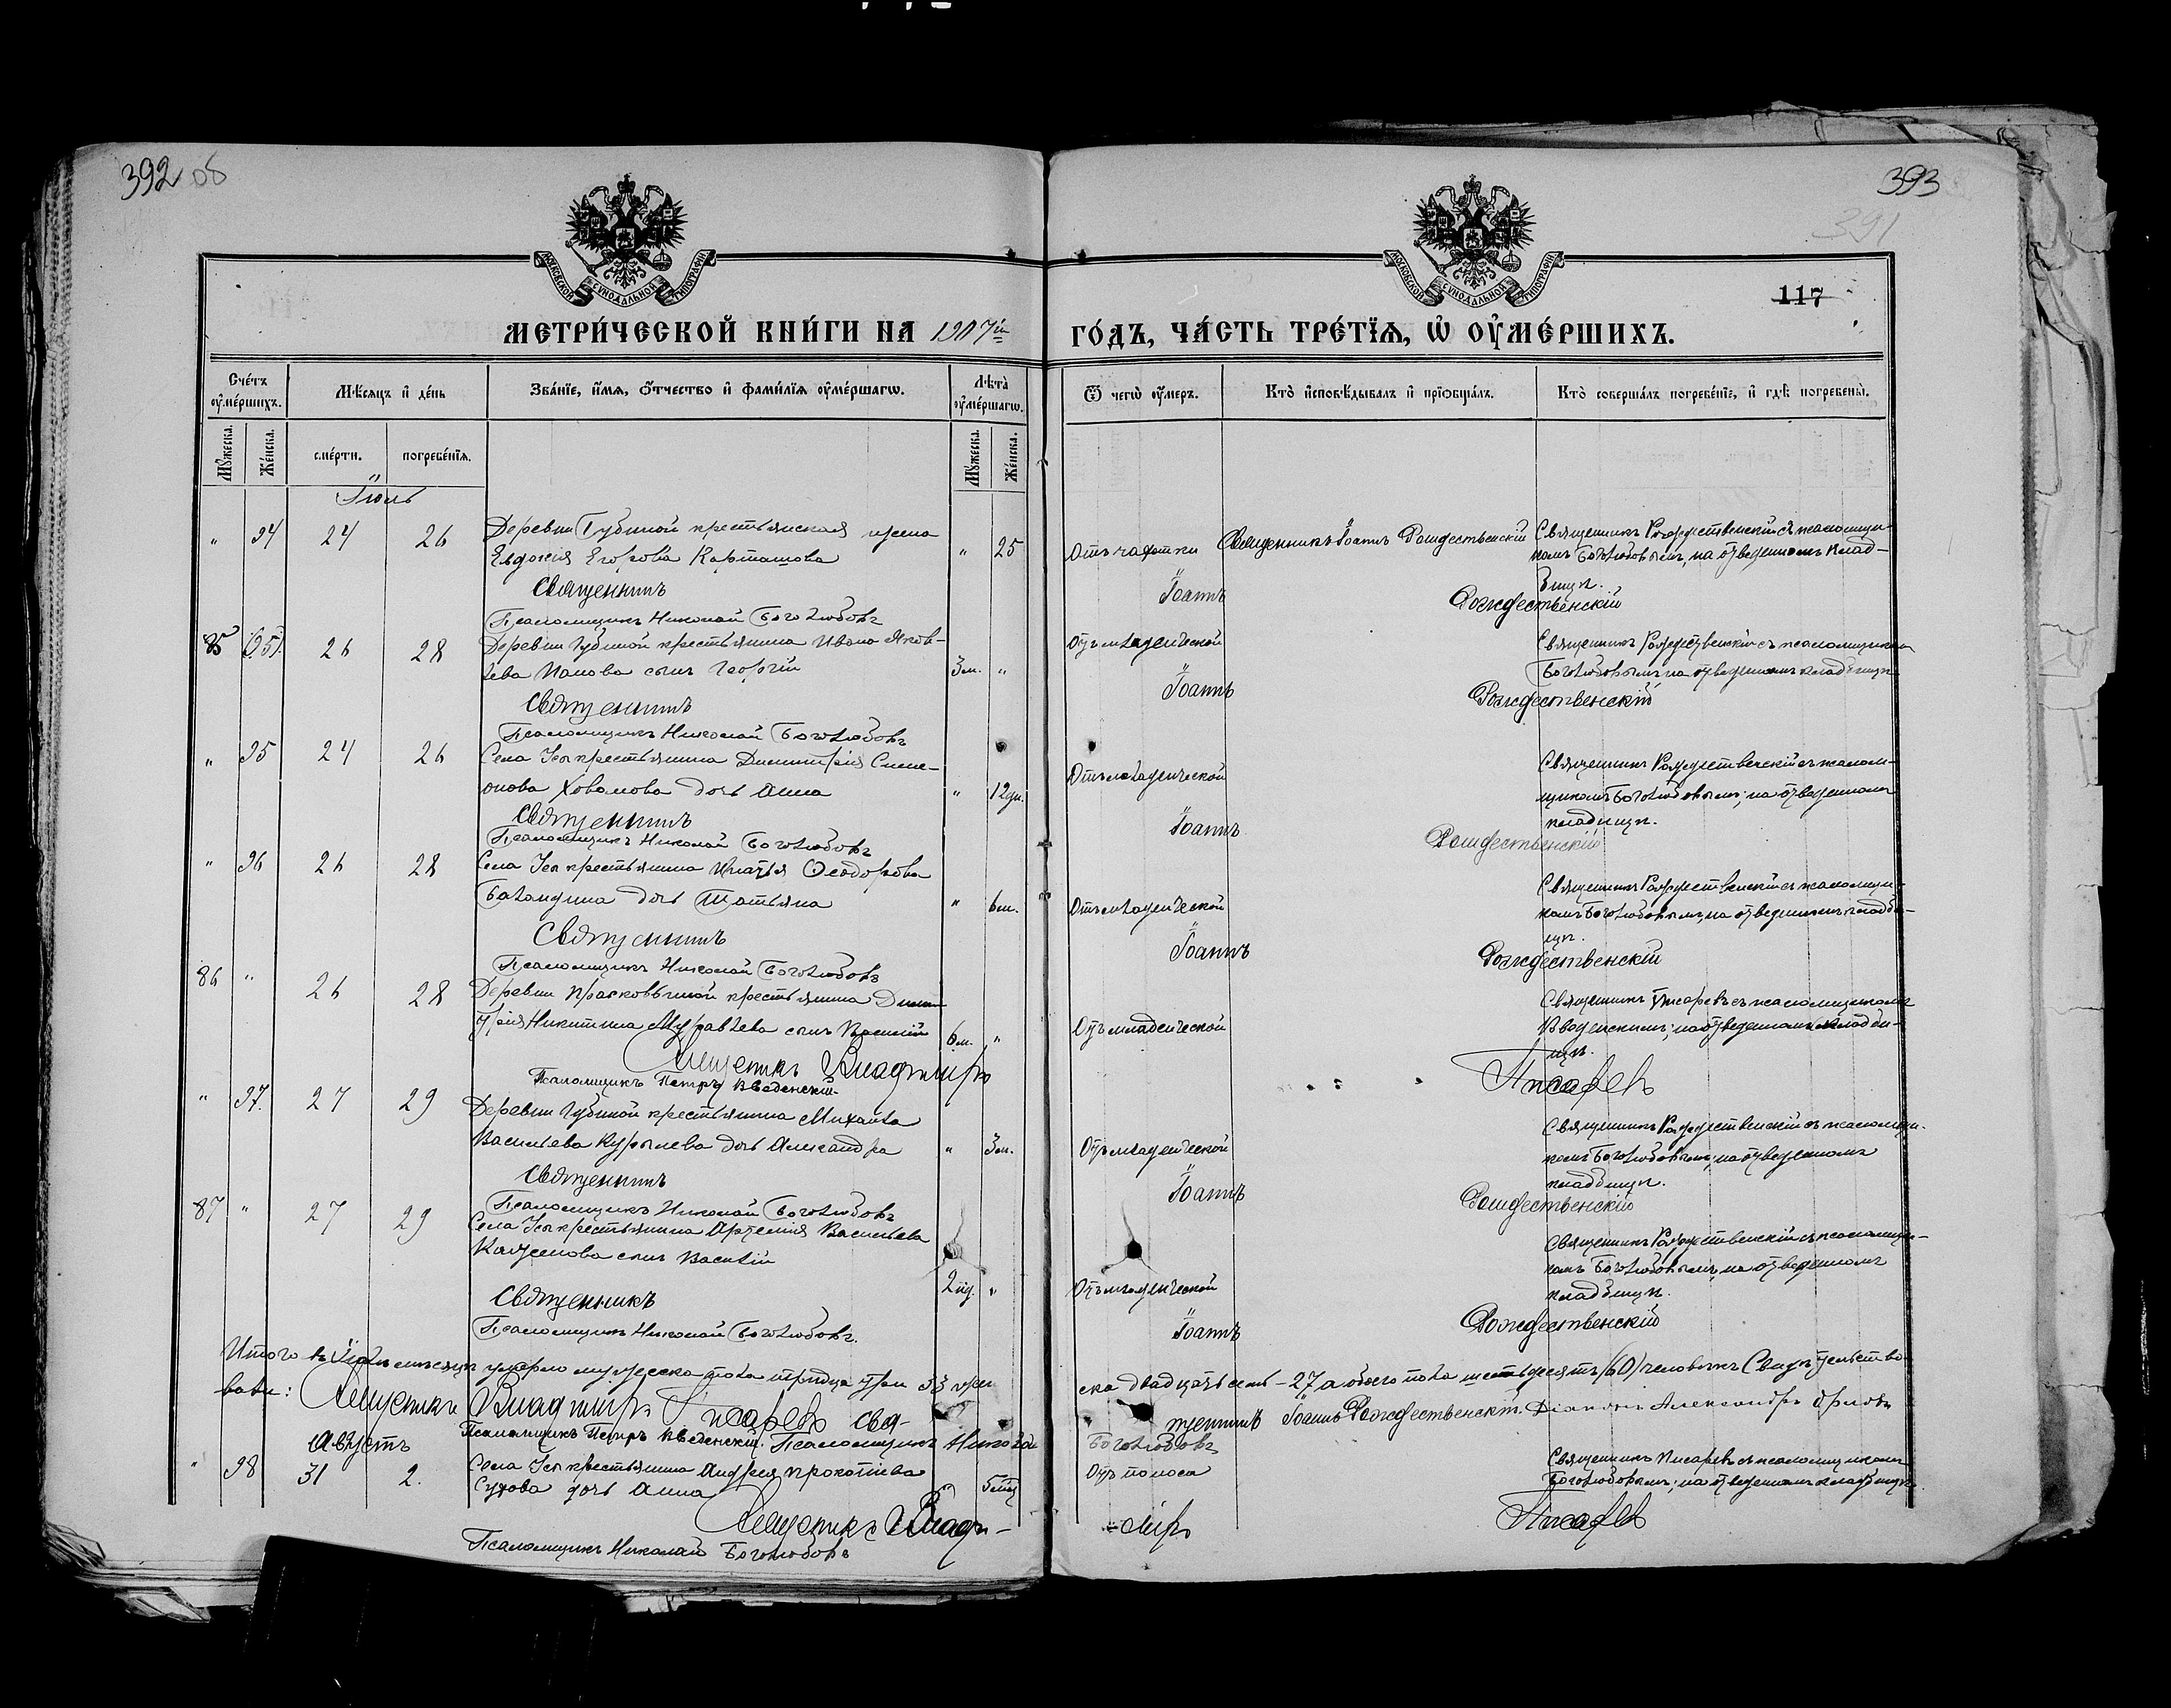 392 об
393
391
117
МОСКОВСКОЙ СѴНОДАЛЬНОЙ ТИПОГРАФІИ
МОСКОВСКОЙ СѴНОДАЛЬНОЙ ТИПОГРАФІИ
МЕТРИ́ЧЕСКОЙ КНИ́ГИ НА 1907й ГО́ДЪ, ЧА́СТЬ ТРЕ́ТЇѦ, Ѡ҆ ОУ҆МЕ́РШИХЪ.
Сче́тъ оу҆ме́ршихъ.
Мѣ́сяцъ и҆ де́нь
Зва́нїе, и҆́мѧ, ѻ҆́тчество и҆ фами́лїѧ оу҆ме́ршагѡ.
Лѣ́та̀ оу҆ме́ршагѡ.
Ѿ чегѡ̀ оу҆́меръ.
Кто̀ и҆сповѣ́дывалъ и҆ прїѡбща́лъ.
Кто̀ соверша́лъ погребе́нїе, и҆ гдѣ̀ погребены̀.
Му́жеска.
Же́нска.
сме́рти.
погребе́нїѧ.
Му́жеска.
Же́нска.
Іюль
" 94 24 26 Деревни Губиной крестьянская жена
Евдокія Егорова Карташова " 25
Отъ чахотки Священникъ Іоаннъ Рождественскій Священникъ Рождественскій съ псаломщи-
комъ Боголюбовымъ, на отведенномъ клад-
бищѣ.
Священникъ Іоаннъ Рождественскій
Псаломщикъ Николай Боголюбовъ
85 (95) 26 28 Деревни Губиной крестьянина Ивана Яков-
лева Панова сынъ Георгій 3м. "
Отъ младенческой Священникъ Рождественскій съ псаломщикомъ
Боголюбовымъ, на отведенномъ кладбищѣ
Священникъ Іоаннъ Рождественскій
Псаломщикъ Николай Боголюбовъ
" 95 24 26 Села Усы крестьянина Димитрія Симе-
онова Хованова дочь Анна " 12дн.
Отъ младенческой Священникъ Рождественскій съ псалом-
щикомъ Боголюбовымъ; на отведенномъ
кладбищѣ.
Священникъ Іоаннъ Рождественскій
Псаломщикъ Николай Боголюбовъ
" 96 26 28 Села Усы крестьянина Игнатія Ѳеодорова
Баландина дочь Татьяна " 6м.
Отъ младенческой Священникъ Рождественскій съ псаломщи-
комъ Боголюбовымъ, на отведенномъ кладби-
щѣ.
Священникъ Іоаннъ Рождественскій
Псаломщикъ Николай Боголюбовъ
86 " 26 28 Деревни Прасковьиной крестьянина Дими-
трія Никитина Муравлева сынъ Василій 6м. "
Отъ младенческой Священникъ Писаревъ съ псаломщикомъ
Введенскимъ; на отведенномъ кладби-
щѣ.
Священникъ Владиміръ Писаревъ
Псаломщикъ Петръ Введенскій.
" 97. 27 29 Деревни Губиной крестьянина Михаила
Васильева дочь Александра " 3м.
Отъ младенческой Священникъ Рождественскій съ псаломщи-
комъ Боголюбовымъ; на отведенномъ
кладбищѣ.
Священникъ Іоаннъ Рождественскій
Псаломщикъ Николай Боголюбовъ
87 " 27 29 Села Усы крестьянина Артемія Васильева
сынъ Василій 2нд. "
Отъ младенческой Священникъ Рождественскій съ псаломщи-
комъ Боголюбовымъ, на отведенномъ
кладбищѣ.
Священникъ Іоаннъ Рождественскій
Псаломщикъ Николай Боголюбовъ.
Итого въ Іюлѣ мѣсяцѣ умерло мужеска пола тридца три 33 жен
ска двадцать семь - 27 а обоего пола шестьдесятъ (60) человѣкъ Свидѣтельство
вали: Священникъ Владиміръ Писаревъ Свя-
щенникъ Іоаннъ Рождественскій. Діаконъ Александръ Орловъ
Псаломщикъ Петръ Введенскій. Псаломщикъ Николай Боголюбовъ
Августъ
" 98 31 2. Села Усы крестьянина Андрея Прокопіева
дочь Анна
Отъ поноса Священникъ Писаревъ съ псаломщикомъ
Боголюбовымъ; на отведенномъ кладбищѣ.
Священникъ Влади-
-міръ Писаревъ
Псаломщикъ Николай Боголюбовъ